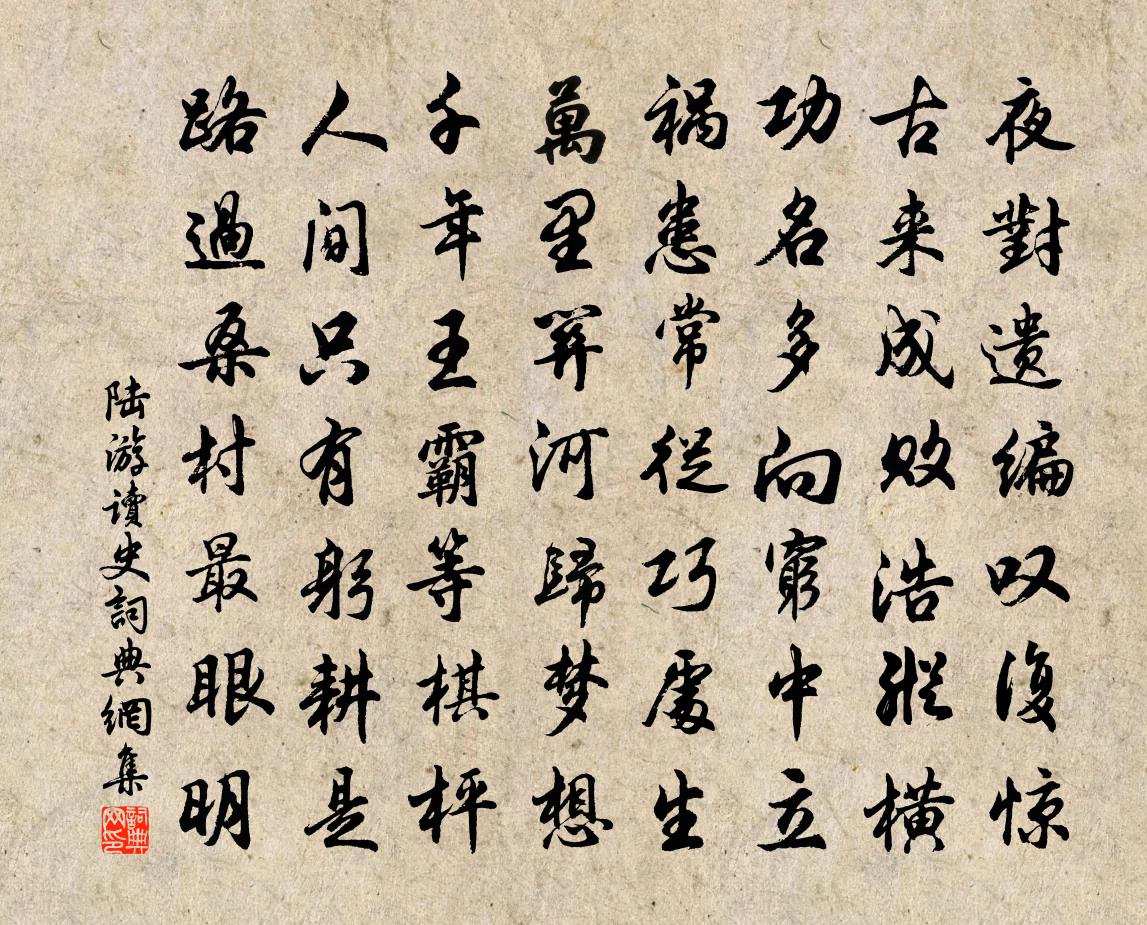 夜對遗编叹復惊
古来成败浩縱横
功名多向窮中立
祸患常從巧處生
萬里关河歸梦想
千年王霸等棋枰
人间只有躬耕是
路過桑村最眼明
陆游讀史詞典網集
詞典网印